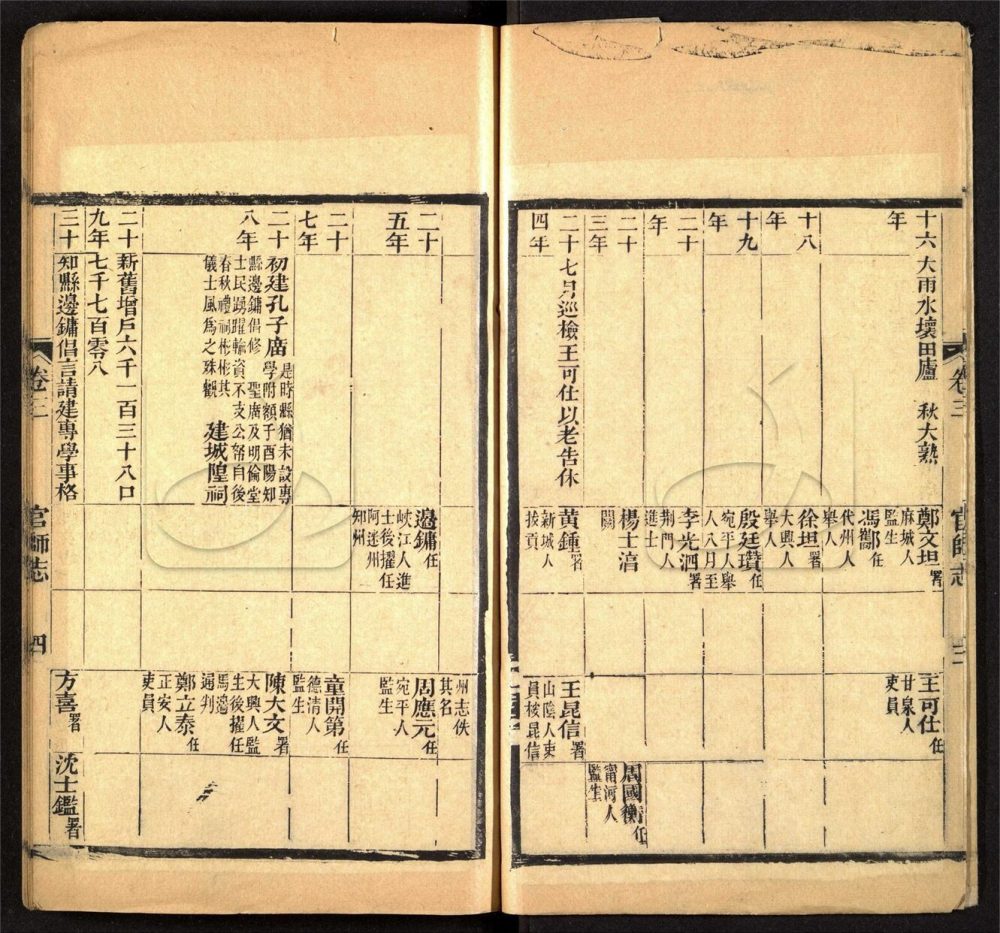 十六年
大雨水壞田廬　秋大熟
鄭文坦署
麻城人
監生
馮鄗任
代州人
舉人
王可仕任
甘泉人
吏員
十八年
徐坦署
大興人
舉人
十九年
殷廷瓚任
宛平人舉
人八月至
二十年
李光泗署
荆門人
進士
二十三年
楊士濤
關
周國衡任
甯河人
監生
二十四年
七月巡檢王可仕以老告休
黃鍾署
新城人
拔貢
王昆信署
山陰人吏
員核昆信
卷三
官師志
三
州志佚
其名
二十五年
邊鏞任
峽江人進
士後擢任
阿迷州
知州
周應元任
宛平人
監生
二十七年
童開第任
德清人
監生
二十八年
初建孔子廣
是時縣猶未設專
學附額于酉陽知
縣邊鏞倡修　聖廣及明倫堂
士民踴躍輸資不支公帑自後
春秋禮祠彬彬其
儀士風爲之殊觀
建城隍祠
陳大文署
大興人監
生後擢任
馬邊
通判
鄭立泰任
正安人
吏員
二十九年
新舊增戶六千一百三十八口
七千七百零八
三十
知縣邊鏞倡言請建專學事格
方喜署
沈士鑑署
卷三
官師志
四